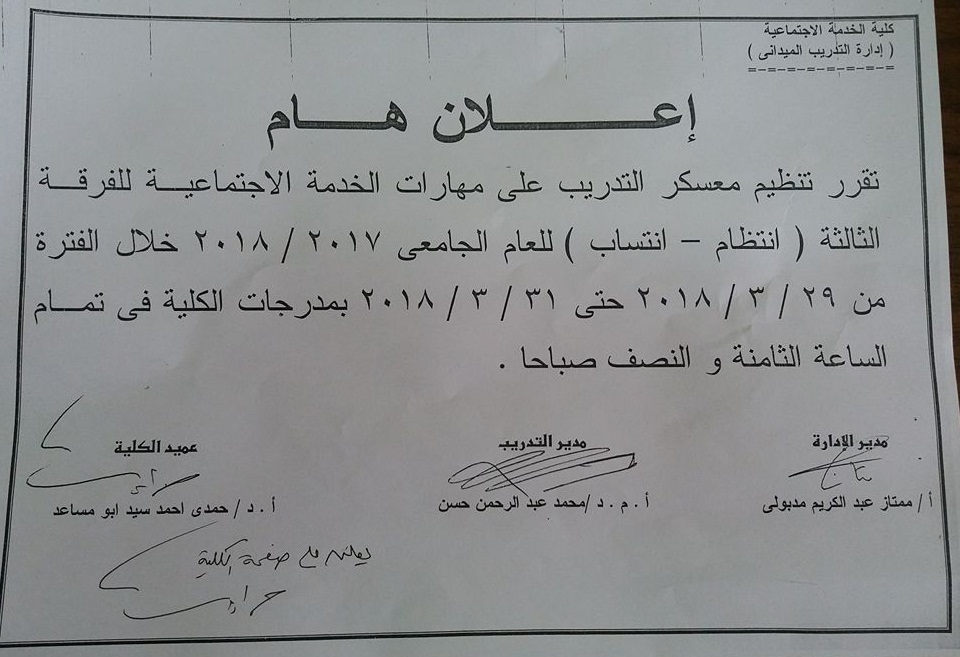 كلية الخدمة الاجتماعية
( إدارة التدريب الميدانى )
=-=-=-=-=-=-=-=-=
إعـــــلان هـــام
تقرر تنظيم معسكر التدريب على مهارات الخدمة الاجتماعيـــة للفرقـــة
الثالثة ( انتظام – انتساب ) للعام الجامعى ٢٠١٧ / ٢٠١٨ خلال الفترة
من ٢٩ / ٣ / ٢٠١٨ حتى ٣١ / ٣ / ٢٠١٨ بمدرجات الكلية فى تمام
الساعة الثامنة و النصف صباحا .
مدير الإدارة مدير التدريب عميد الكلية
أ / ممتاز عبد الكريم مدبولى أ . م . د /محمد عبد الرحمن حسن أ . د / حمدى احمد سيد ابو مساعد
يعلن على صفحة الكلية